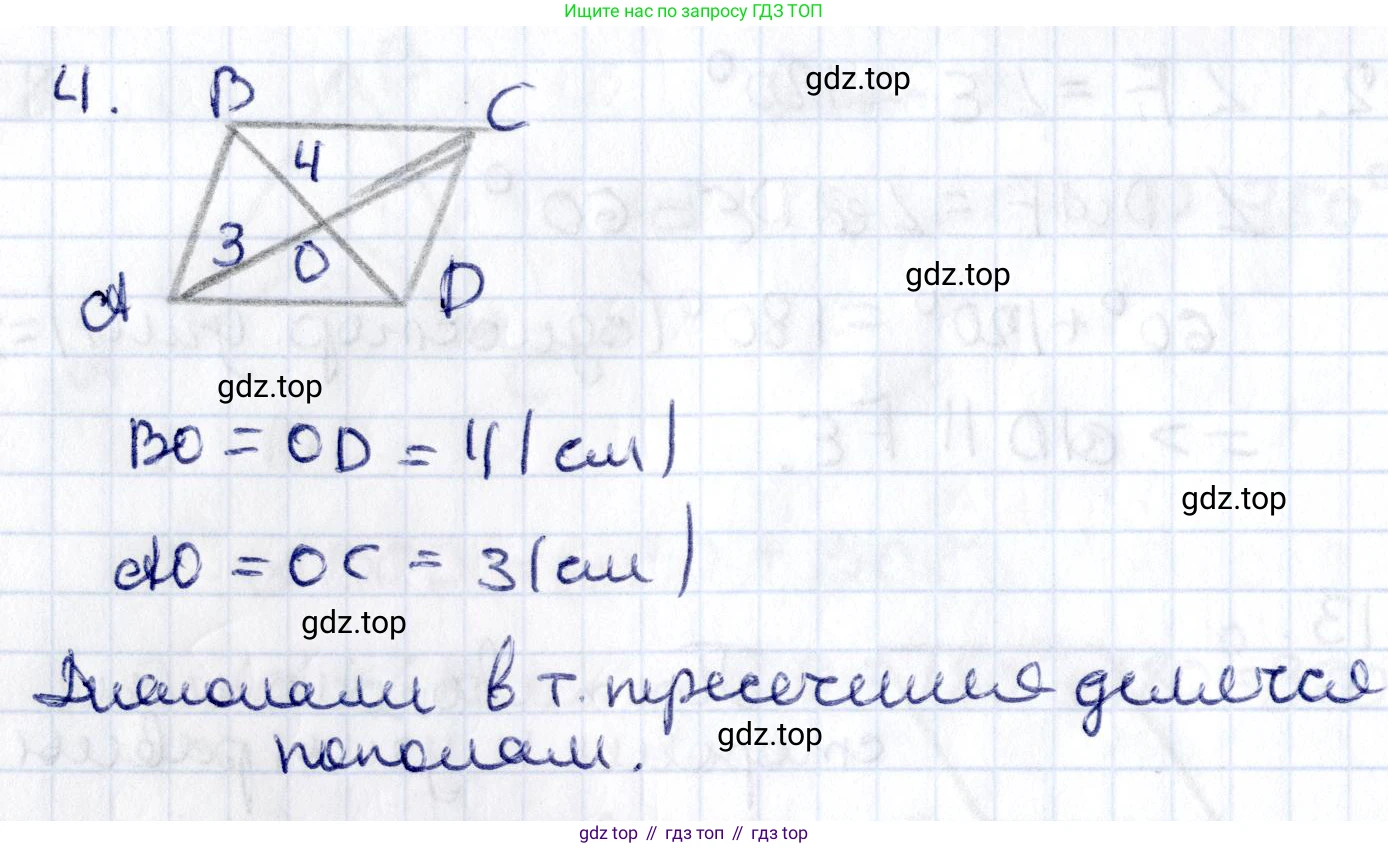 Ищите нас по запросу ГДЗ ТОП
4.
B
C
gdz.top
4
3
O
A
D
gdz.top
gdz.top
BO = OD = 4 (см)
gdz.top
AO = OC = 3 (см)
gdz.top
Диагонали в т. пересечения делятся
gdz.top
пополам.
gdz top // гдз топ // гдз top